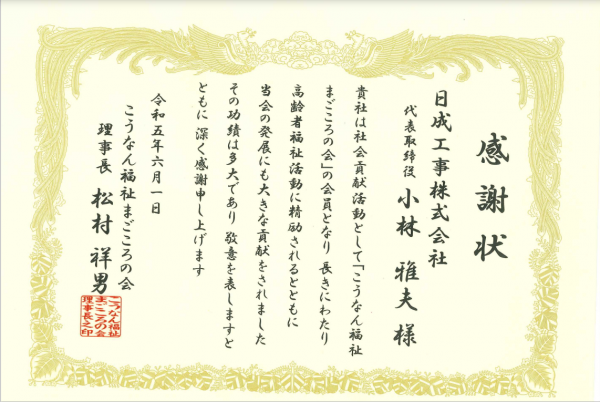 感謝状
日成工事株式会社
代表取締役 小林 雅夫 様
貴社は社会貢献活動として「こうなん福祉
まごころの会」の会員となり 長きにわたり
高齢者福祉活動に精励されるとともに
当会の発展にも大きな貢献をされました
その功績は多大であり 敬意を表しますと
ともに 深く感謝申し上げます
令和五年六月一日
こうなん福祉まごころの会
理事長 松村 祥男
こうなん福祉
まごころの会
理事長之印